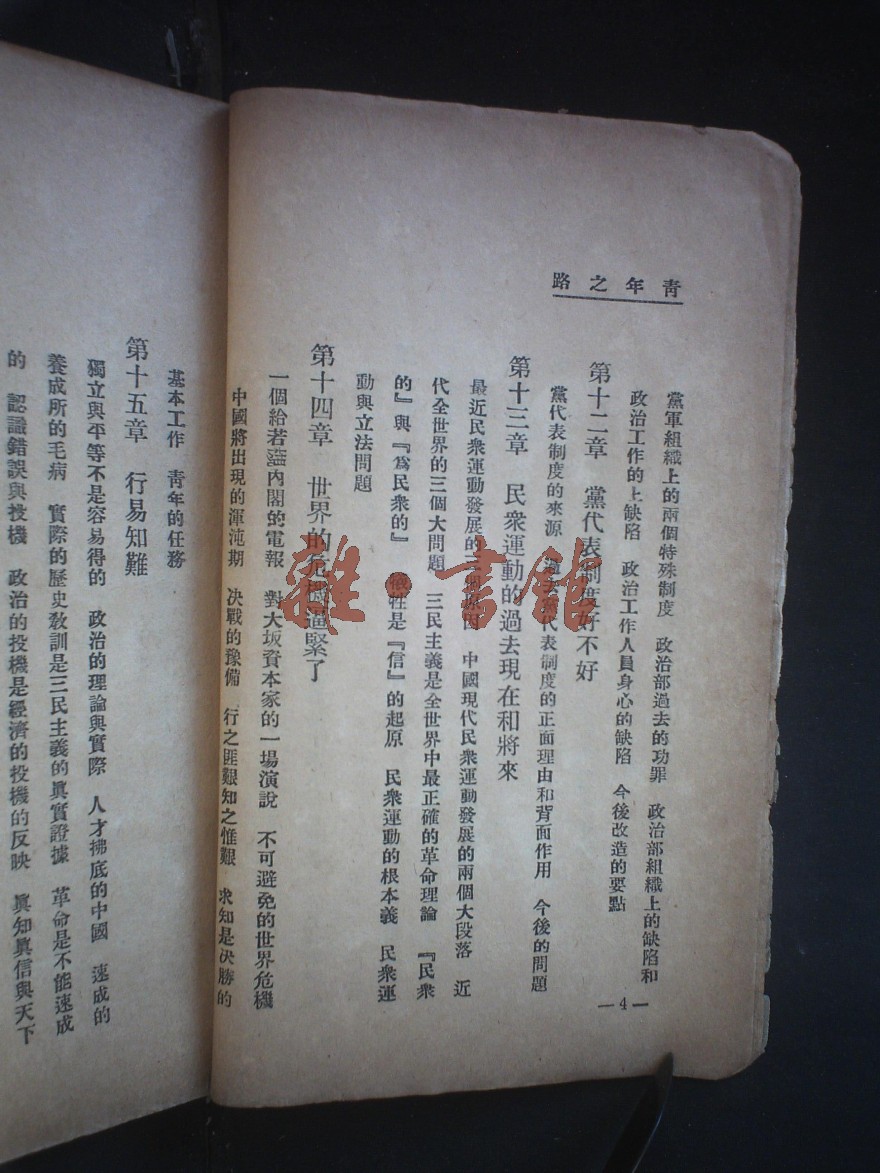 青年之路
黨軍組織上的兩個特殊制度　政治部過去的功罪　政治部組織上的缺陷和
政治工作的上缺陷　政治工作人員身心的缺陷　今後改造的要點
第十二章　黨代表制度好不好
黨代表制度的來源　過去黨代表制度的正面理由和背面作用　今後的問題
第十三章　民衆運動的過去現在和將來
最近民衆運動發展的　原因　中國現代民衆運動發展的兩個大段落　近
代全世界的三個大問題　三民主義是全世界中最正確的革命理論　『民衆
的』與『爲民衆的』　犧牲是『信』的起原　民衆運動的根本義　民衆運
動與立法問題
第十四章　世界的危機逼緊了
一個給若內閣的電報　對大坂資本家的一場演說　不可避免的世界危機
中國將出現的渾沌期　決戰的豫備　行之匪艱知之惟艱　求知是决勝的
—4—
基本工作　青年的任務
第十五章　行易知難
獨立與平等不是容易得的　政治的理論與實際　人才拂底的中國　速成的
養成所的毛病　實際的歷史敎訓是三民主義的眞實證據　革命是不能速成
的　認識錯誤與投機　政治的投機是經濟的投機的反映　眞知眞信與天下
雜·書館